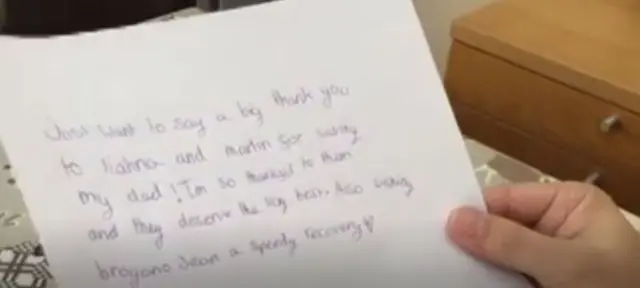 Just want to say a big thank you
to and martin for saving
my dad! I'm so thankful to them
and they deserve the very best. Also wishing
Sean a speedy recovery